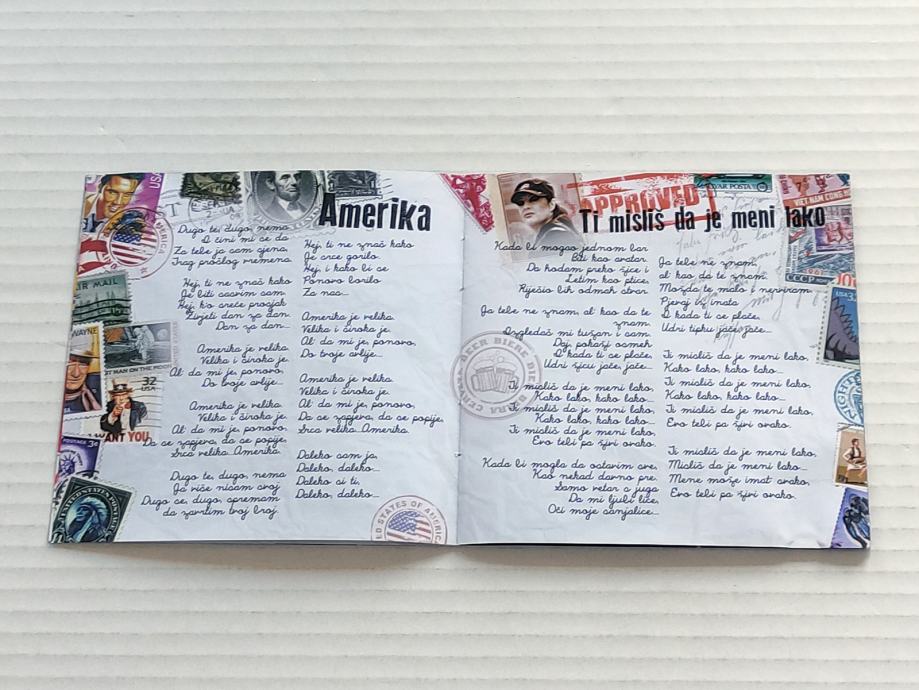 Amerika
Dugo te, dugo, nema
I čini mi se da
Za tebe ja sam cjena,
Trag prošlog vremena.
Hej, ti ne znaš kako
Je biti sasvim sam
Hej, k'o sreće prosjak
Živjeti dan za dan.
Dan za dan...
Amerika je velika.
Velika i široka je.
Al' da mi je, ponovo,
Do tvoje avlije...
Amerika je velika.
Velika i široka je.
Al' da mi je, ponovo,
Da se zapjeva, da se popije,
Srca velika Amerika.
Dugo te, dugo, nema
Ja više nisam svoj
Dugo se, dugo, spremam
da završim svoj broj.
Hej, ti ne znaš kako
Je srce gorilo.
Hej, i kako bi se
Ponovo borilo
Za nas...
Amerika je velika.
Velika i široka je.
Al' da mi je, ponovo,
Do tvoje avlije...
Amerika je velika.
Velika i široka je.
Al' da mi je, ponovo,
Da se zapjeva, da se popije,
Srca velika Amerika.
Daleko sam ja,
Daleko, daleko...
Daleko si ti,
Daleko, daleko...
Daleko, daleko...
USA
AIR MAIL
WAYNE
32
USA
I WANT YOU
POSTAGE 3¢
UNITED STATES OF AMERICA
APPROVED
Ti misliš da je meni lako
Kada bi mogao jednom bar
Biti kao avatar.
Da hodam preko žice i
Letim kao ptice,
Riješio bih odmah stvar.
Ja tebe ne znam, al kao da te
znam.
Izgledaš mi tužan i sam.
Daj, pokaži osmeh
I kada ti se plače,
Udri žicu jače, jače...
Ti misliš da je meni lako,
Kako lako, kako lako...
Ti misliš da je meni lako,
Kako lako, kako lako...
Ti misliš da je meni lako,
Evo tebi pa živi ovako.
Kada bi mogla da ostavim sve,
Kao nekad davno pre.
Samo vetar s juga
Da mi ljubi lice,
Oči moje sanjalice...
Ja tebe ne znam,
al kao da te znam.
Možda te malo i nerviram
Pjevaj iz inata
I kada ti se plače,
Udri tipku jače, jače...
Ti misliš da je meni lako,
Kako lako, kako lako...
Ti misliš da je meni lako,
Kako lako, kako lako...
Ti misliš da je meni lako,
Evo tebi pa živi ovako.
Ti misliš da je meni lako,
Misliš da je meni lako...
Mene može imat svako,
Evo tebi pa živi ovako.
BEER BIERE BIÈRE
VIET NAM
CCCP 1967
USA